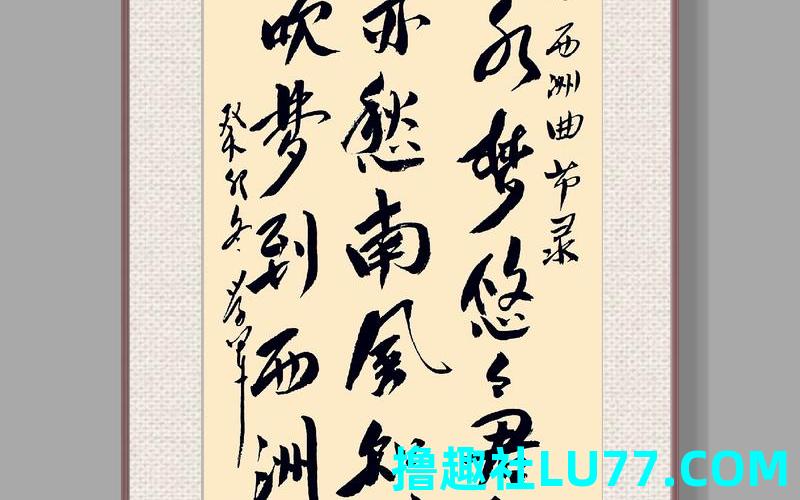 西洲曲节录
水梦悠々君
亦愁南风知
吹梦到西洲
癸卯冬
撸趣社LU77.COM